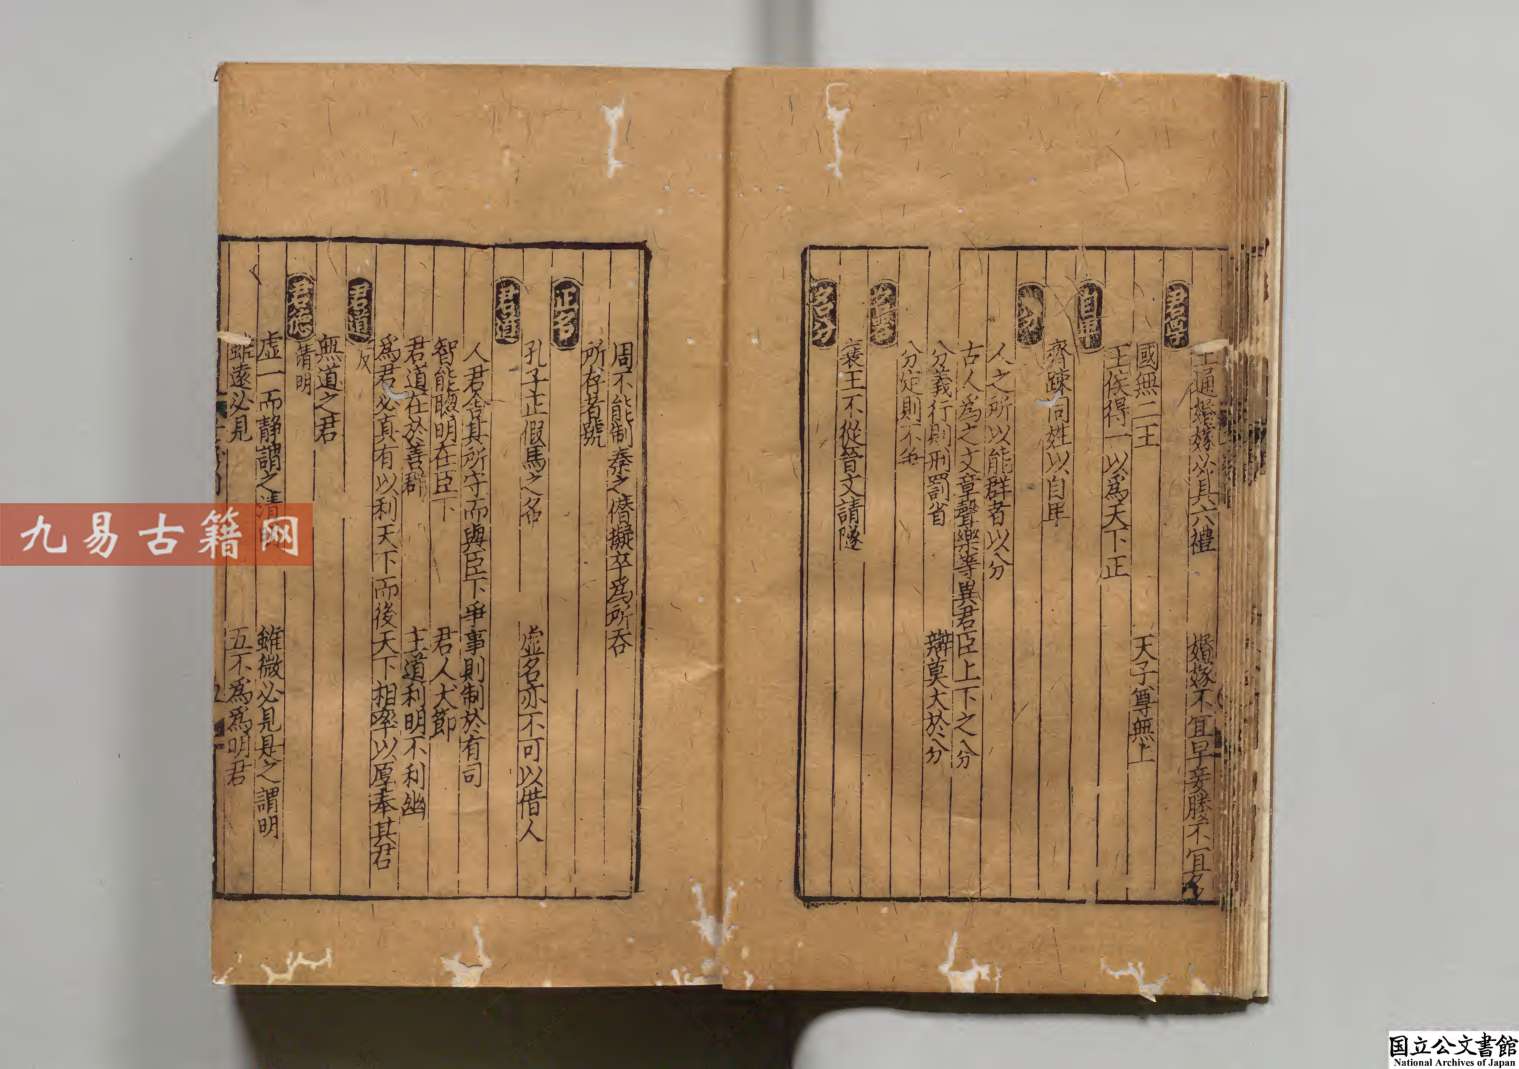 通婚嫁必具六禮　婚嫁不宜早妾媵不宜多
君尊
國無二王　天子尊無上
王侯得一以為天下正
自卑
齊踈同姓以自卑
分
人之所以能群者以分
古人為之文章聲樂等異君臣上下之分
分義行則刑罰省　辯莫大於分
分定則不争
名器
襄王不從晉文請隧
名分
周不能制秦之僭擬卒為所吞
所存者號
正名
孔子正假馬之名　虛名亦不可以借人
君道
人君舍其所守而與臣下爭事則制於有司
智能聦明在臣下　君人大節
君道在於善群　主道利明不利幽
為君必真有以利天下而後天下相率以厚奉其君
君道
反
無道之君
君德
清明
虛一而靜謂之清明　雖微必見是之謂明
雖遠必見　五不為為明君
九易古籍网
国立公文書館
National Archives of Japan